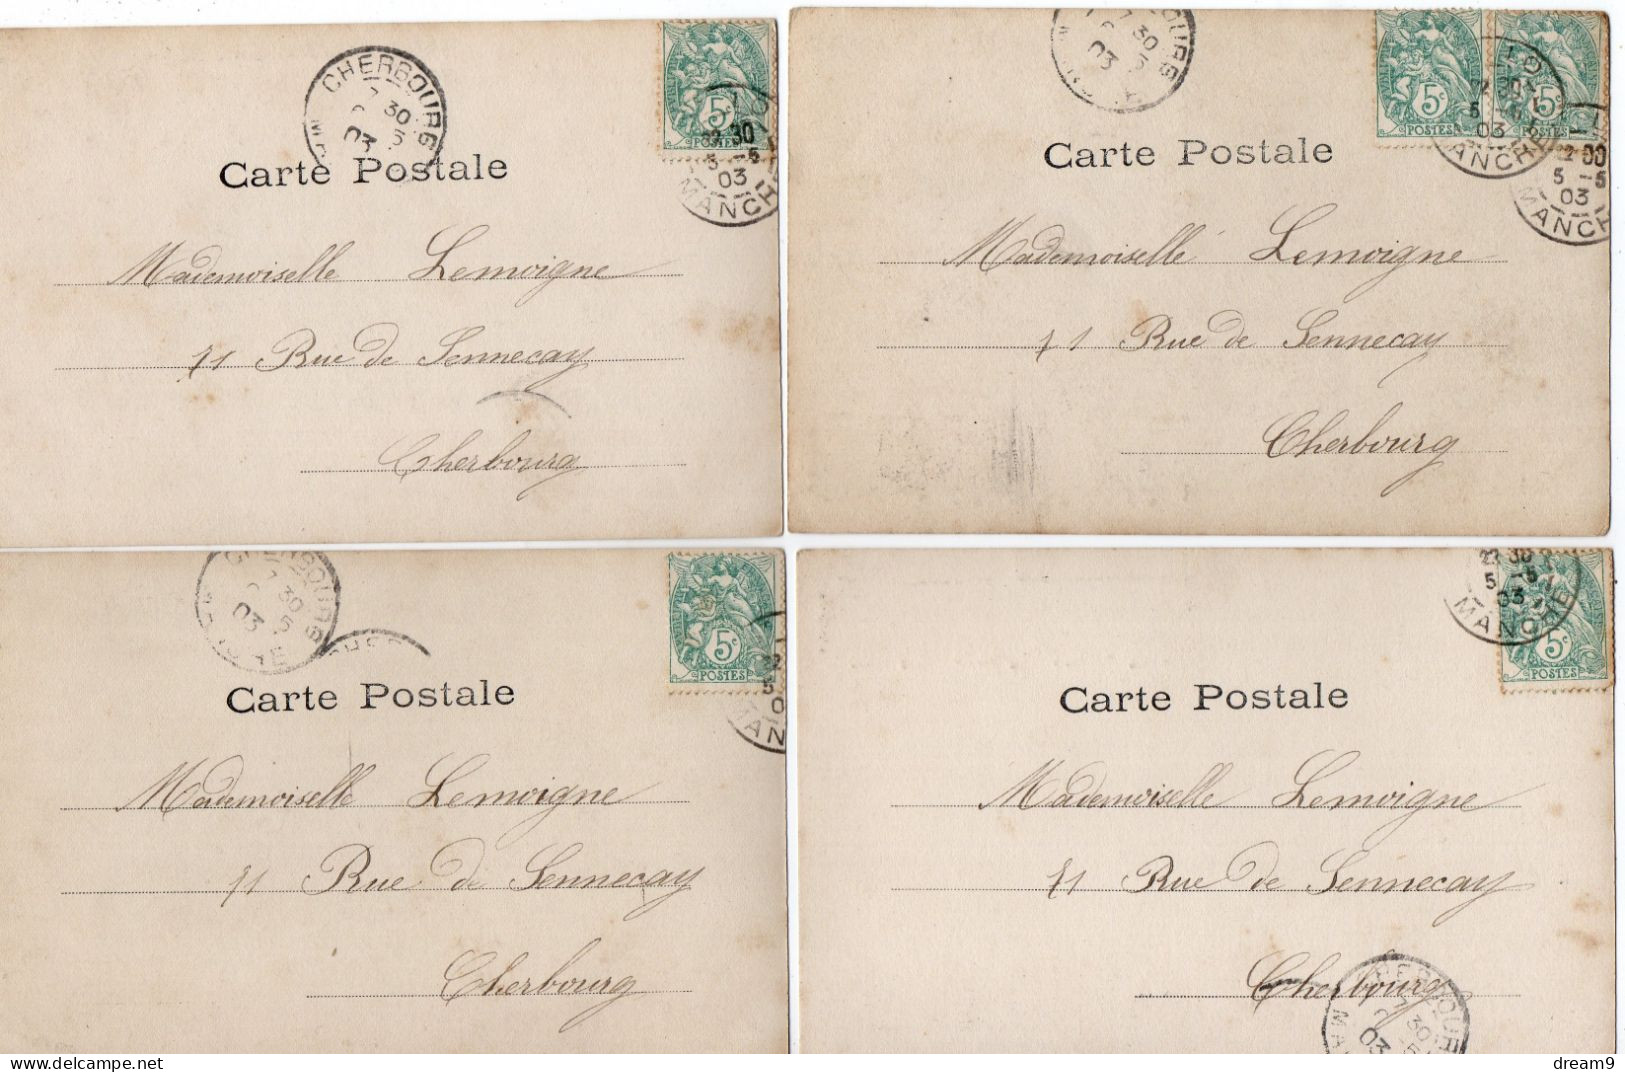 CHERBOURG
7 30
6 5
03
5c
POSTES
22 30
5 -5
03
MANCHE
Carte Postale
Mademoiselle Lemoigne
71 Rue de Sennecay
Cherbourg
7 30
5
03
5c
POSTES
5c
LO
5
03
MANCHE
5 -5
03
MANCH
Carte Postale
Mademoiselle Lemoigne
71 Rue de Sennecay
Cherbourg
CHERBOURG
7 30
5
03
CHER
5c
POSTES
5
MAN
Carte Postale
Mademoiselle Lemoigne
71 Rue de Sennecay
Cherbourg
22 30
5 -5
03
MANCHE
5c
Carte Postale
Mademoiselle Lemoigne
71 Rue de Sennecay
Cherbourg
30
03
delcampe.net
dream9